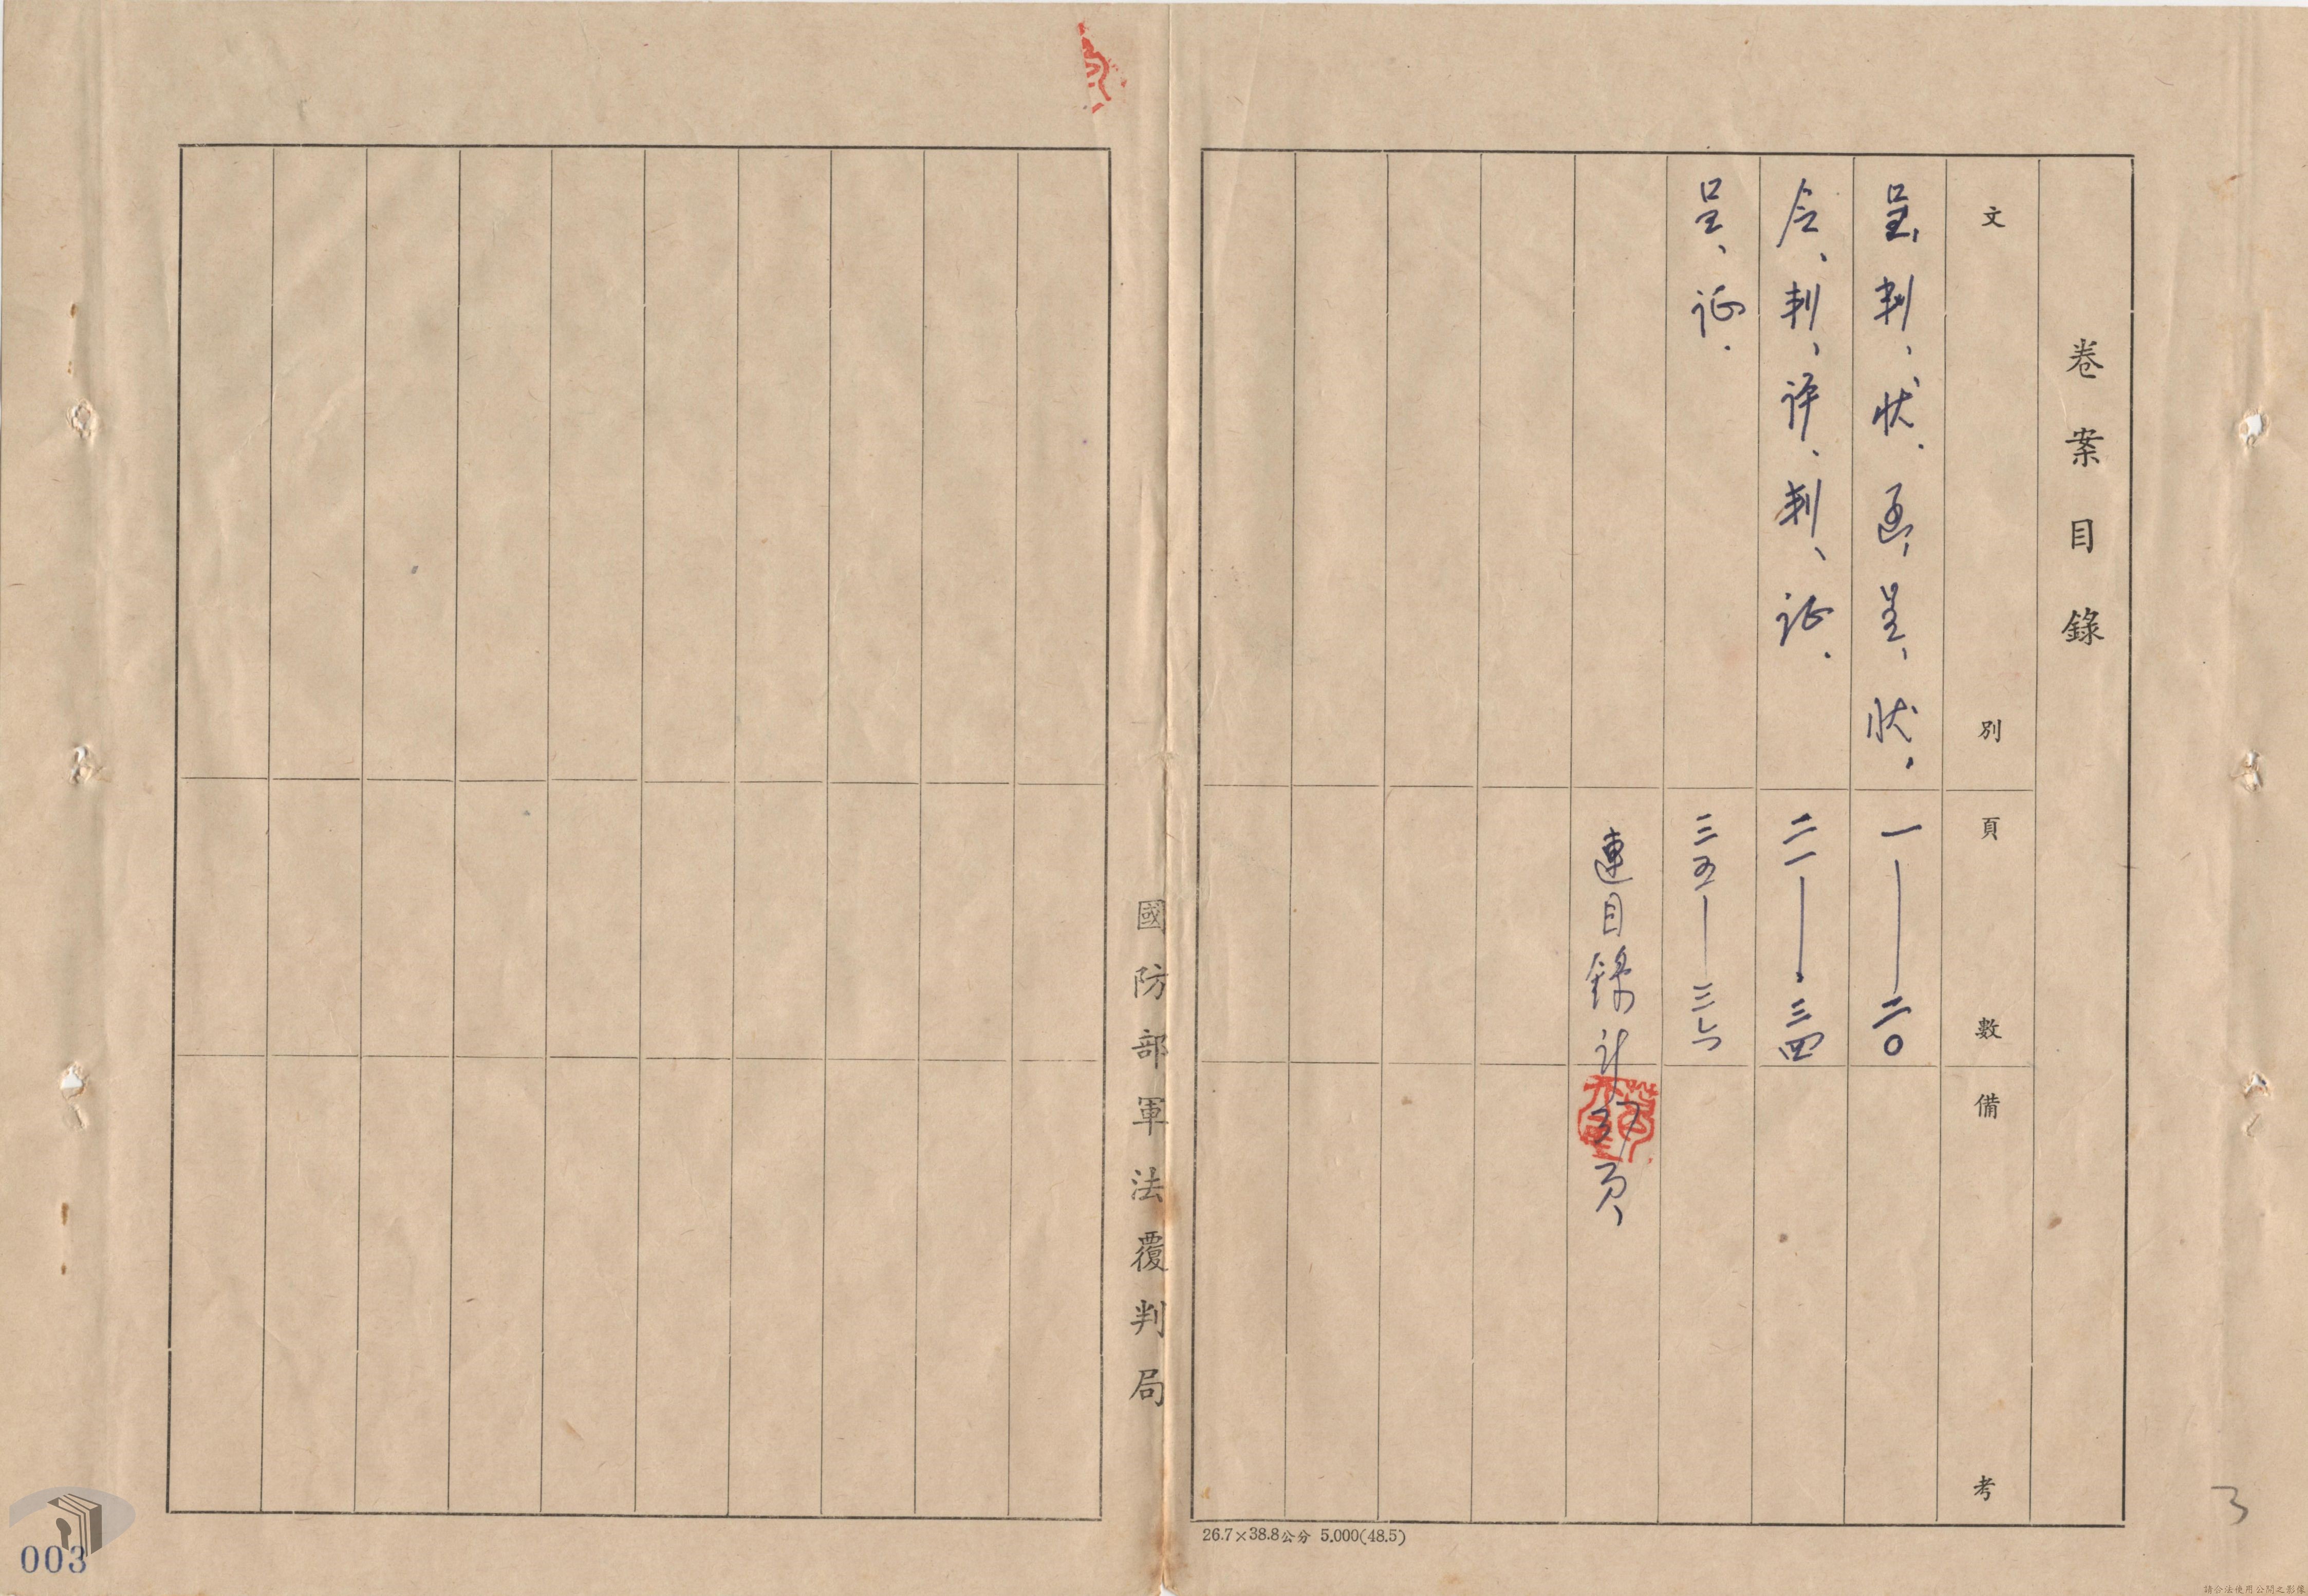 卷案目錄
文別
頁數
備考
呈、判、状、函、呈、状、
一——二〇
令、判、评、判、证、
二一——三四
呈、证、
三五—三六
連目錄計37頁
國防部軍法覆判局
26.7×38.8公分 5,000(48.5)
3
003
請合法使用公開之影像